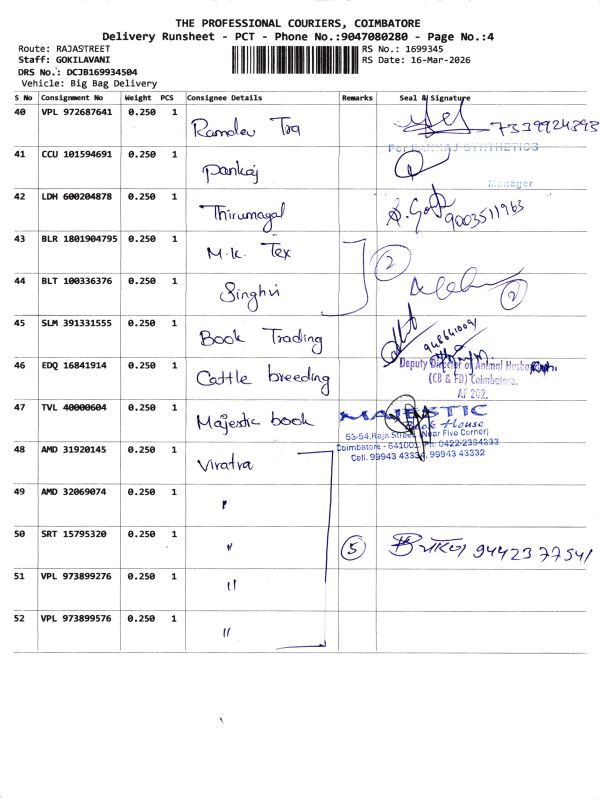 THE PROFESSIONAL COURIERS, COIMBATORE
Delivery Runsheet - PCT - Phone No.:9047080280 - Page No.:4
Route: RAJASTREET
Staff: GOKILAVANI
DRS No.: DCJB169934504
Vehicle: Big Bag Delivery
RS No.: 1699345
RS Date: 16-Mar-2026
S No Consignment No Weight PCS Consignee Details Remarks Seal & Signature
40 VPL 972687641 0.250 1 Ramdev Tra 7339924893
41 CCU 101594691 0.250 1 Pankaj For PANKAJ SYNTHETICS
Manager
42 LDH 600204878 0.250 1 Thirumagal 9003511963
43 BLR 1801904795 0.250 1 M.K. Tex 2
44 BLT 100336376 0.250 1 Singhvi 2
45 SLM 391331555 0.250 1 Book Trading
46 EDQ 16841914 0.250 1 Cattle breeding Deputy Director of Animal
(CB & FD) Coimbatore.
47 TVL 40000604 0.250 1 Majestic book MAJESTIC
Book House
53-54, Raja Street, (Near Five Corner)
Coimbatore - 641001. Ph: 0422-2394333
Cell: 99943 43334, 99943 43332
48 AMD 31920145 0.250 1 Viratra
49 AMD 32069074 0.250 1 "
50 SRT 15795320 0.250 1 " 5 9442377541
51 VPL 973899276 0.250 1 "
52 VPL 973899576 0.250 1 "